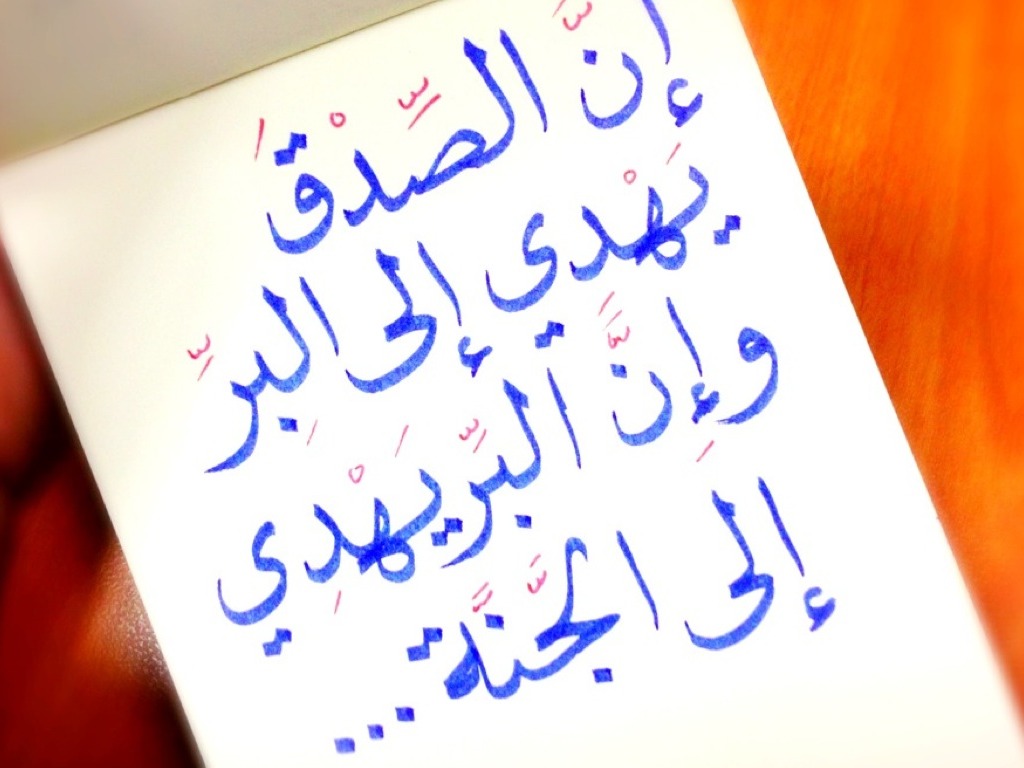 إنّ الصِّدْقَ
يَهْدي إلى البرِّ
وإنَّ البِرَّ يَهْدِي
إلى الجَنَّة...